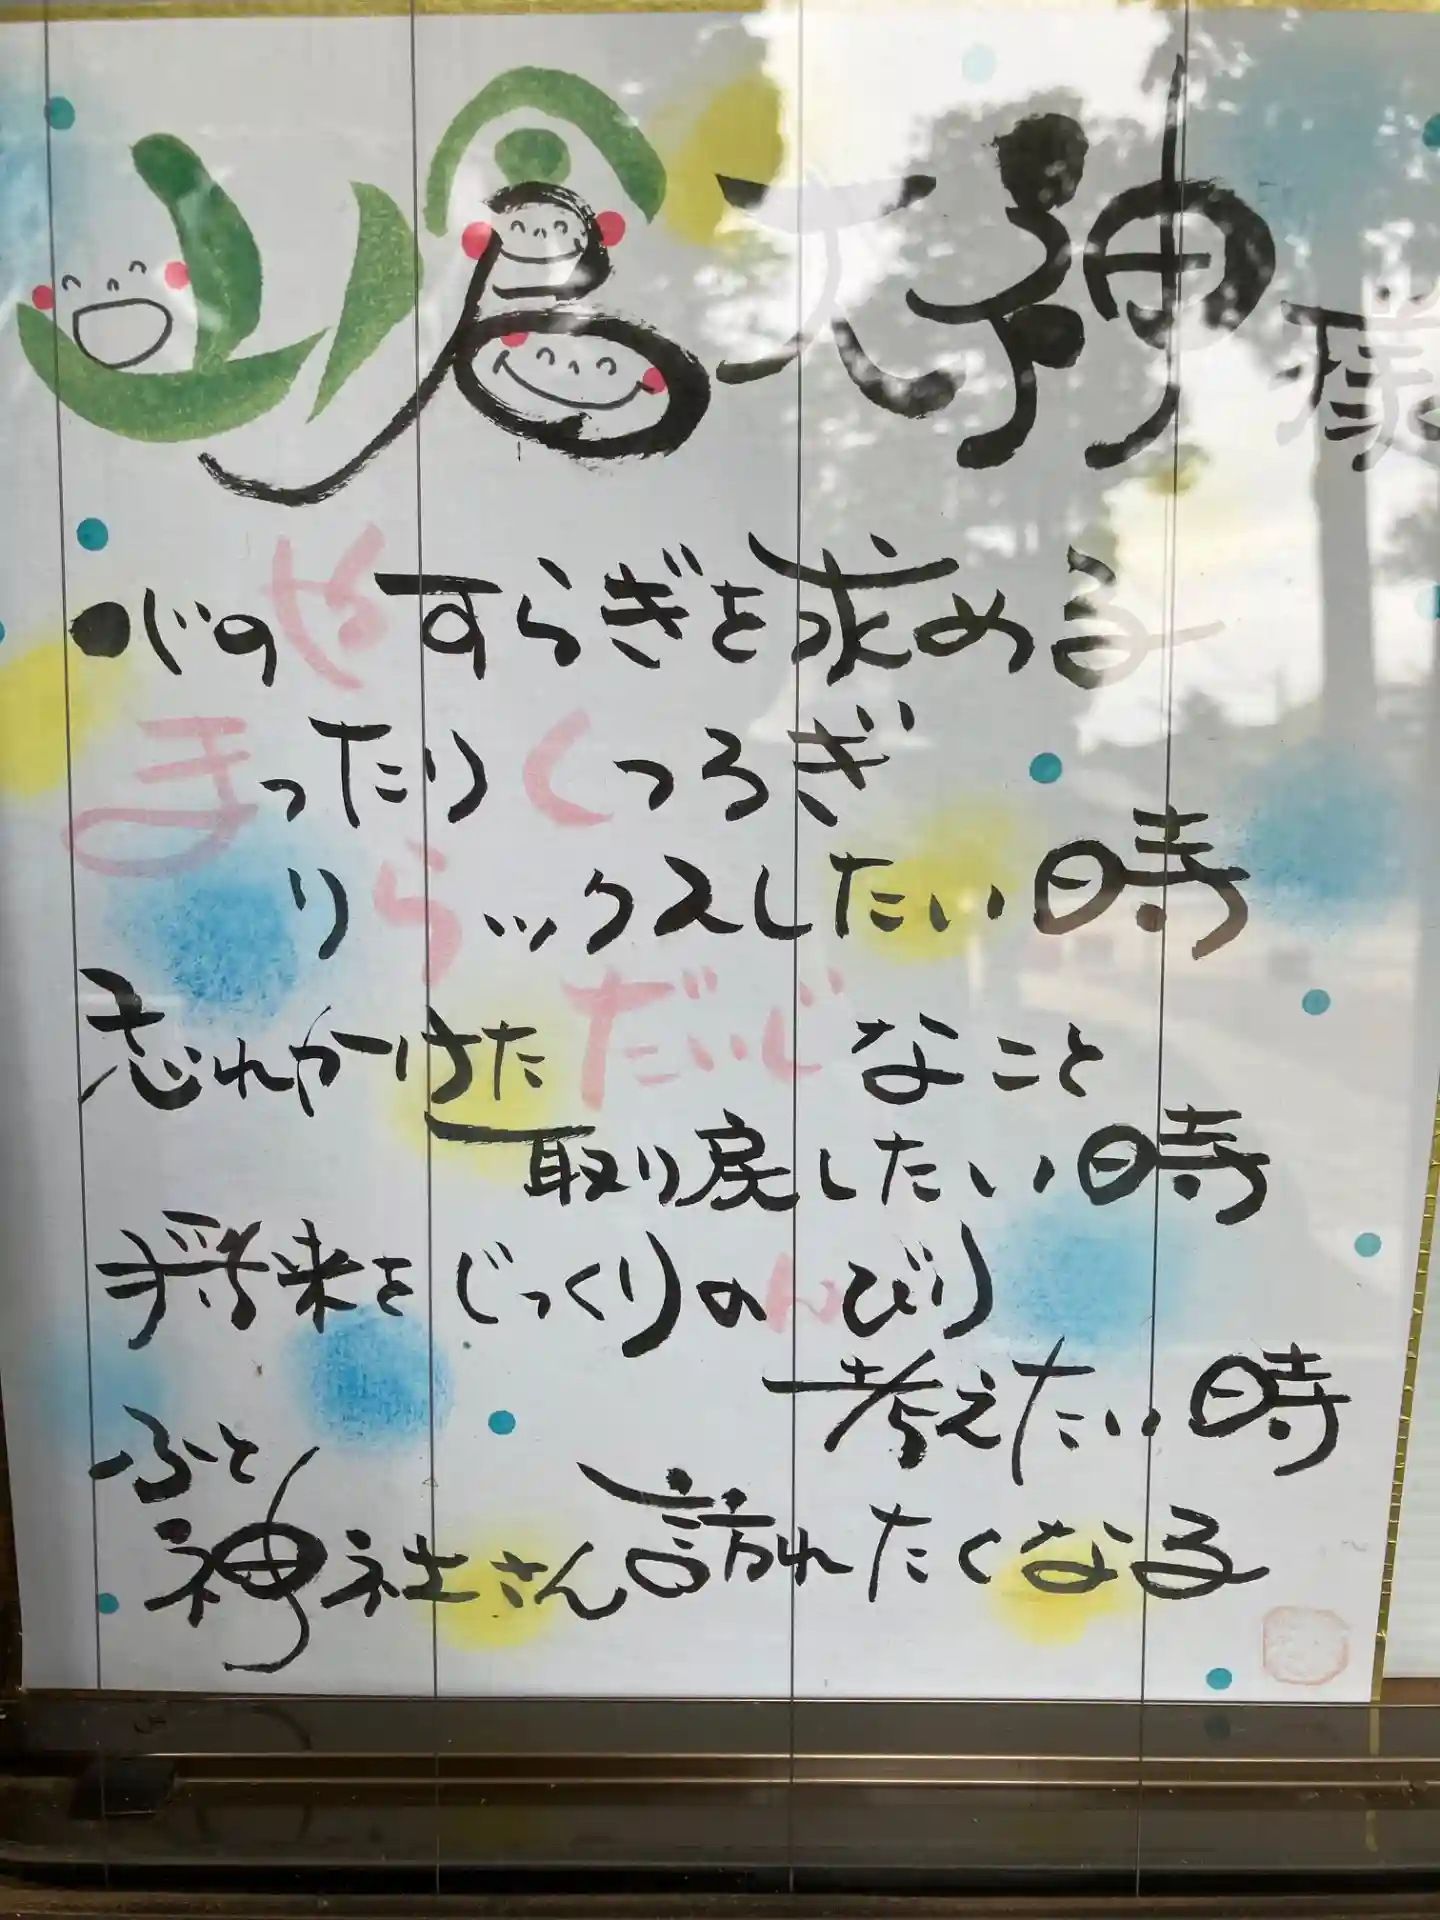 山倉大神様
心のやすらぎを求める
まったりくつろぎ
りらックスしたい時
忘れかけただいじなこと
取り戻したい時
将来をじっくりのんびり
考えたい時
ふと
神社さん訪れたくなる